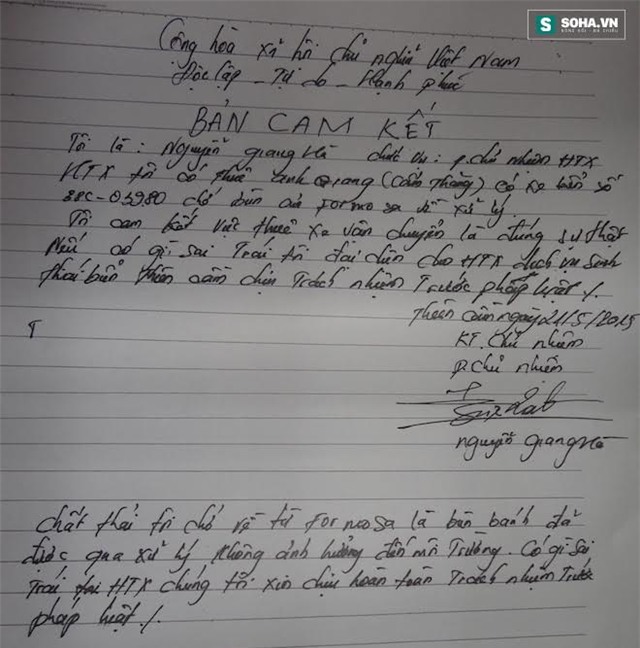 SOHA.VN
Cộng hòa xã hội chủ nghĩa Việt Nam
Độc lập - Tự do - Hạnh phúc
BẢN CAM KẾT
Tôi là: Nguyễn giang Hà chức vụ: p.chủ nhiệm HTX
HTX tôi có thuê anh Quang (Cẩm Thăng) có xe biển số
38C-03980 chở bùn của Formosa về xử lý.
Tôi cam kết vực thuê xe vận chuyển là đúng sự thật
Nếu có gì sai Trái tôi đại diện cho HTX dịch vụ Sinh
thái biển thiên cầm chịu Trách nhiệm Trước pháp luật /.
Thiên Cầm ngày 21/5/2015
KT. Chủ nhiệm
P. Chủ nhiệm
nguyễn giang Hà
chất thải tôi chở về từ Formosa là bùn banh đã
được qua xử lý không ảnh hưởng đến môi Trường. Có gì sai
Trái HTX chúng tôi xin chịu hoàn toàn Trách nhiệm Trước
pháp luật /.